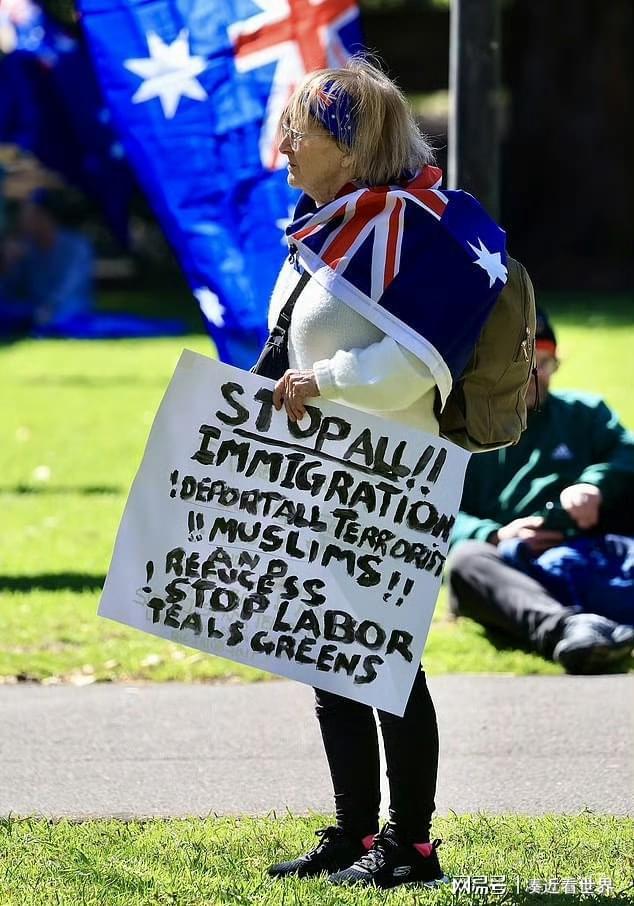 STOP ALL!!
IMMIGRATION
!DEPORT ALL TERRORIST
!! MUSLIMS !!
AND
REFUGESS
! STOP LABOR
TEALS GREENS
网易号 | 凑近看世界